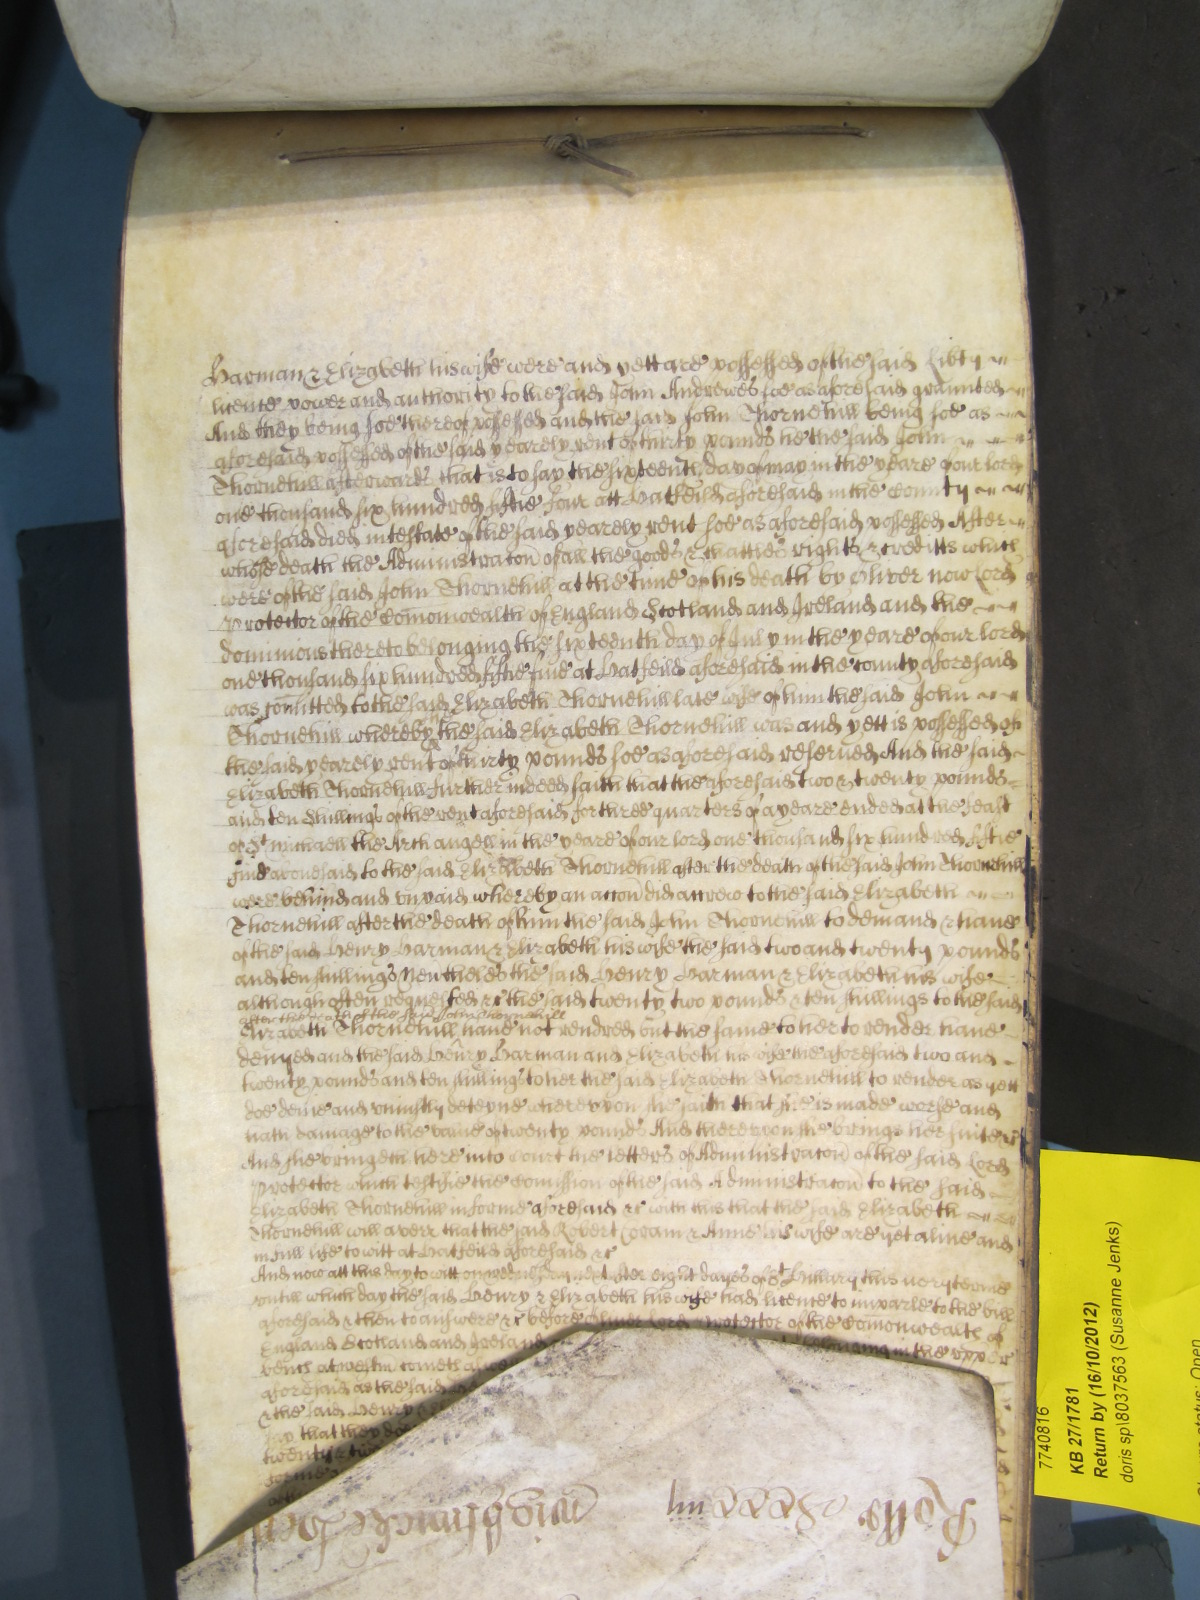 Harman & Elizabeth his wife were and yett are possessed of the said libty
licence power and authority to the said John Andrewes soe as aforesaid graunted
And they being soe thereof possessed and the said John Thornehill being soe as
aforesaid possessed of the said yearely rent of thirty pounds he the said John
Thornehill afterwards that is to say the sixteenth day of may in the yeare of our lord
one thousand six hundred fiftie four att Hatfeild aforesaid in the County
aforesaid died intestate of the said yearely rent soe as aforesaid possessed After
whose death the Administracon of all the goods & chattles rights & creditts which
were of the said John Thornehill at the time of his death by Oliver now Lord
Protector of the Comonwealth of England Scotland and Ireland and the
dominions thereto belonging the sixteenth day of July in the yeare of our lord
one thousand six hundred fiftie five at Hatfeild aforesaid in the county aforesaid
was comitted to the said Elizabeth Thornehill late wife of him the said John
Thornehill whereby the said Elizabeth Thornehill was and yett is possessed of
the said yearely rent of thirty pounds soe as aforesaid reserved And the said
Elizabeth Thornehill further indeed saith that the aforesaid two & twenty pounds
and ten shillings of the rent aforesaid for three quarters of a yeare ended at the feast
of St michaell the Arch angell in the yeare of our lord one thousand six hundred fiftie
five abovesaid to the said Elizabeth Thornehill after the death of the said John Thornehill
were behind and vnpaid whereby an accon did accrew to the said Elizabeth
Thornehill after the death of him the said John Thornehill to demand & haue
of the said Henry Harman & Elizabeth his wife the said two and twenty pounds
and ten shillings Neutheles the said Henry Harman & Elizabeth his wife
although often requested &c the said twenty two pounds & ten shillings to the said
after the death of the said John Thornehill
Elizabeth Thornehill haue not rendred but the same to her to render haue
denyed and the said Henry Harman and Elizabeth his wife the aforesaid two and
twenty pounds and ten shillings to her the said Elizabeth Thornehill to render as yett
doe denie and vniustly deteyne wherevpon she saith that she is made worse and
hath damage to the value of twenty pounds And therevpon she brings her suite &c
And she bringeth here into Court the letters of Administracon of the said Lord
Protector which testifie the Comission of the said Administracon to the said
Elizabeth Thornehill in forme aforesaid &c with this that the said Elizabeth
Thornehill will averr that the said Robert & Anne his wife are yet aliue and
in full life to witt at Hatfeild aforesaid &c
And now att this day to witt on wednesday next after eight dayes of St Hillary this very terme
vntill which day the said Henry & Elizabeth his wife had licence to imparle to the bill
aforesaid & then to answere &c before Oliver Lord Protector of the Comonwealth of
England Scotland and Ireland belonging in the vpper
bench at westm cometh
aforesaid as the said
& the said Henry
say that they doe
twenty & two
forme
Rolls
7740816
KB 27/1781
Return by (16/10/2012)
doris sp\8037563 (Susanne Jenks)
status: Open